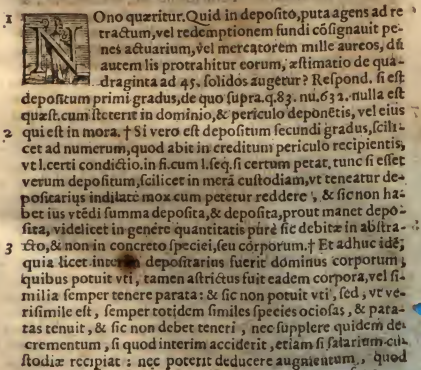 1 NOno quæritur. Quid in deposito, puta agens ad re
tractum, vel redemptionem fundi cōsignauit pe-
nes actuarium, vel mercatorem mille aureos, dū
autem lis protrahitur eorum, æstimatio de qua-
draginta ad 45. solidos augetur? Respond. si est
depositum primi gradus, de quo supra. q. 83. nu. 632. nulla est
quæst. cum steterit in dominio, & periculo deponētis, vel eius
2 qui est in mora. † Si vero est depositum secundi gradus, scili-
cet ad numerum, quod abit in creditum periculo recipientis,
vt l. certi condictio. in fi. cum l. seq. si certum petat. tunc si esset
verum depositum, scilicet in merā custodiam, vt teneatur de-
positarius indilatè mox cum petetur reddere, & sic non ha-
bet ius vtēdi summa deposita, & deposita, prout manet depo-
sita, videlicet in genere quantitatis purè sic debitæ in abstra-
3 cto, & non in concreto speciei, seu corporum. † Et adhuc idē;
quia licet interim depositarius fuerit dominus corporum,
quibus potuit vti, tamen astrictus fuit eadem corpora, vel si-
milia semper tenere parata: & sic non potuit vti, sed, vt ve-
risimile est, semper totidem similes species ociosas, & para-
tas tenuit, & sic non debet teneri, nec supplere quidem de-
crementum, si quod interim acciderit, etiam si salarium cu-
stodiæ recipiat: nec poterit deducere augmentum, quod